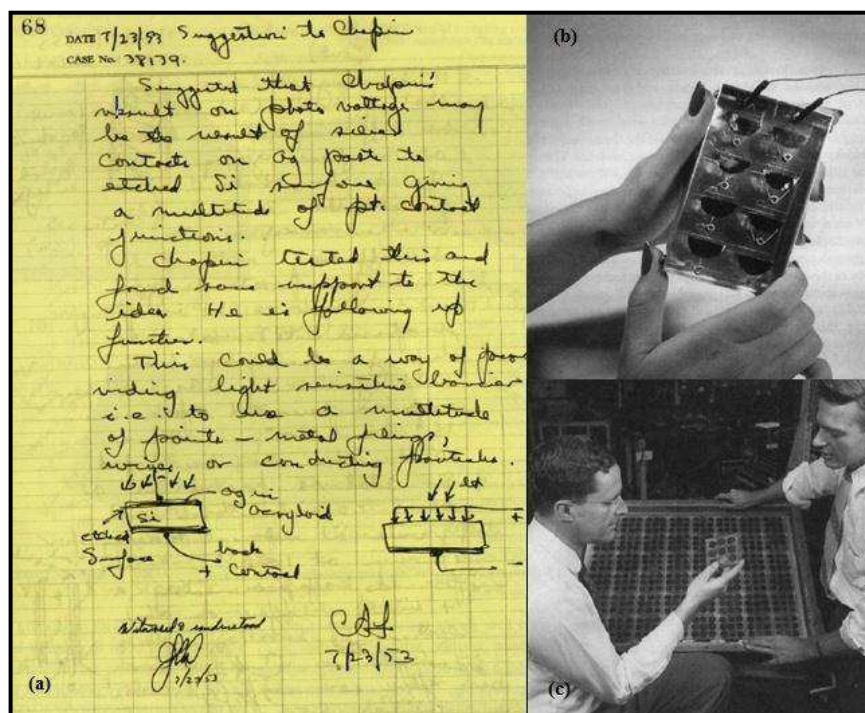 68
DATE 7/23/53 Suggestion to Chapin
CASE No. 38139.
Suggested that Chapin's
result on photo voltage may
be the result of silver
contacts on ag paste to
etched Si surface giving
a multitude of pt. contact
junctions.
Chapin tested this and
found some support to the
idea. He is following up
further.
This could be a way of pro-
viding light sensitive barrier
i.e. to use a multitude
of points – metal filings,
or conducting particles.
ag in
acryloid
Si
etched
Surface
back
+ Contact
lt
+
-
Witnessed & understood
7/27/53
7/23/53
(a)
(b)
(c)